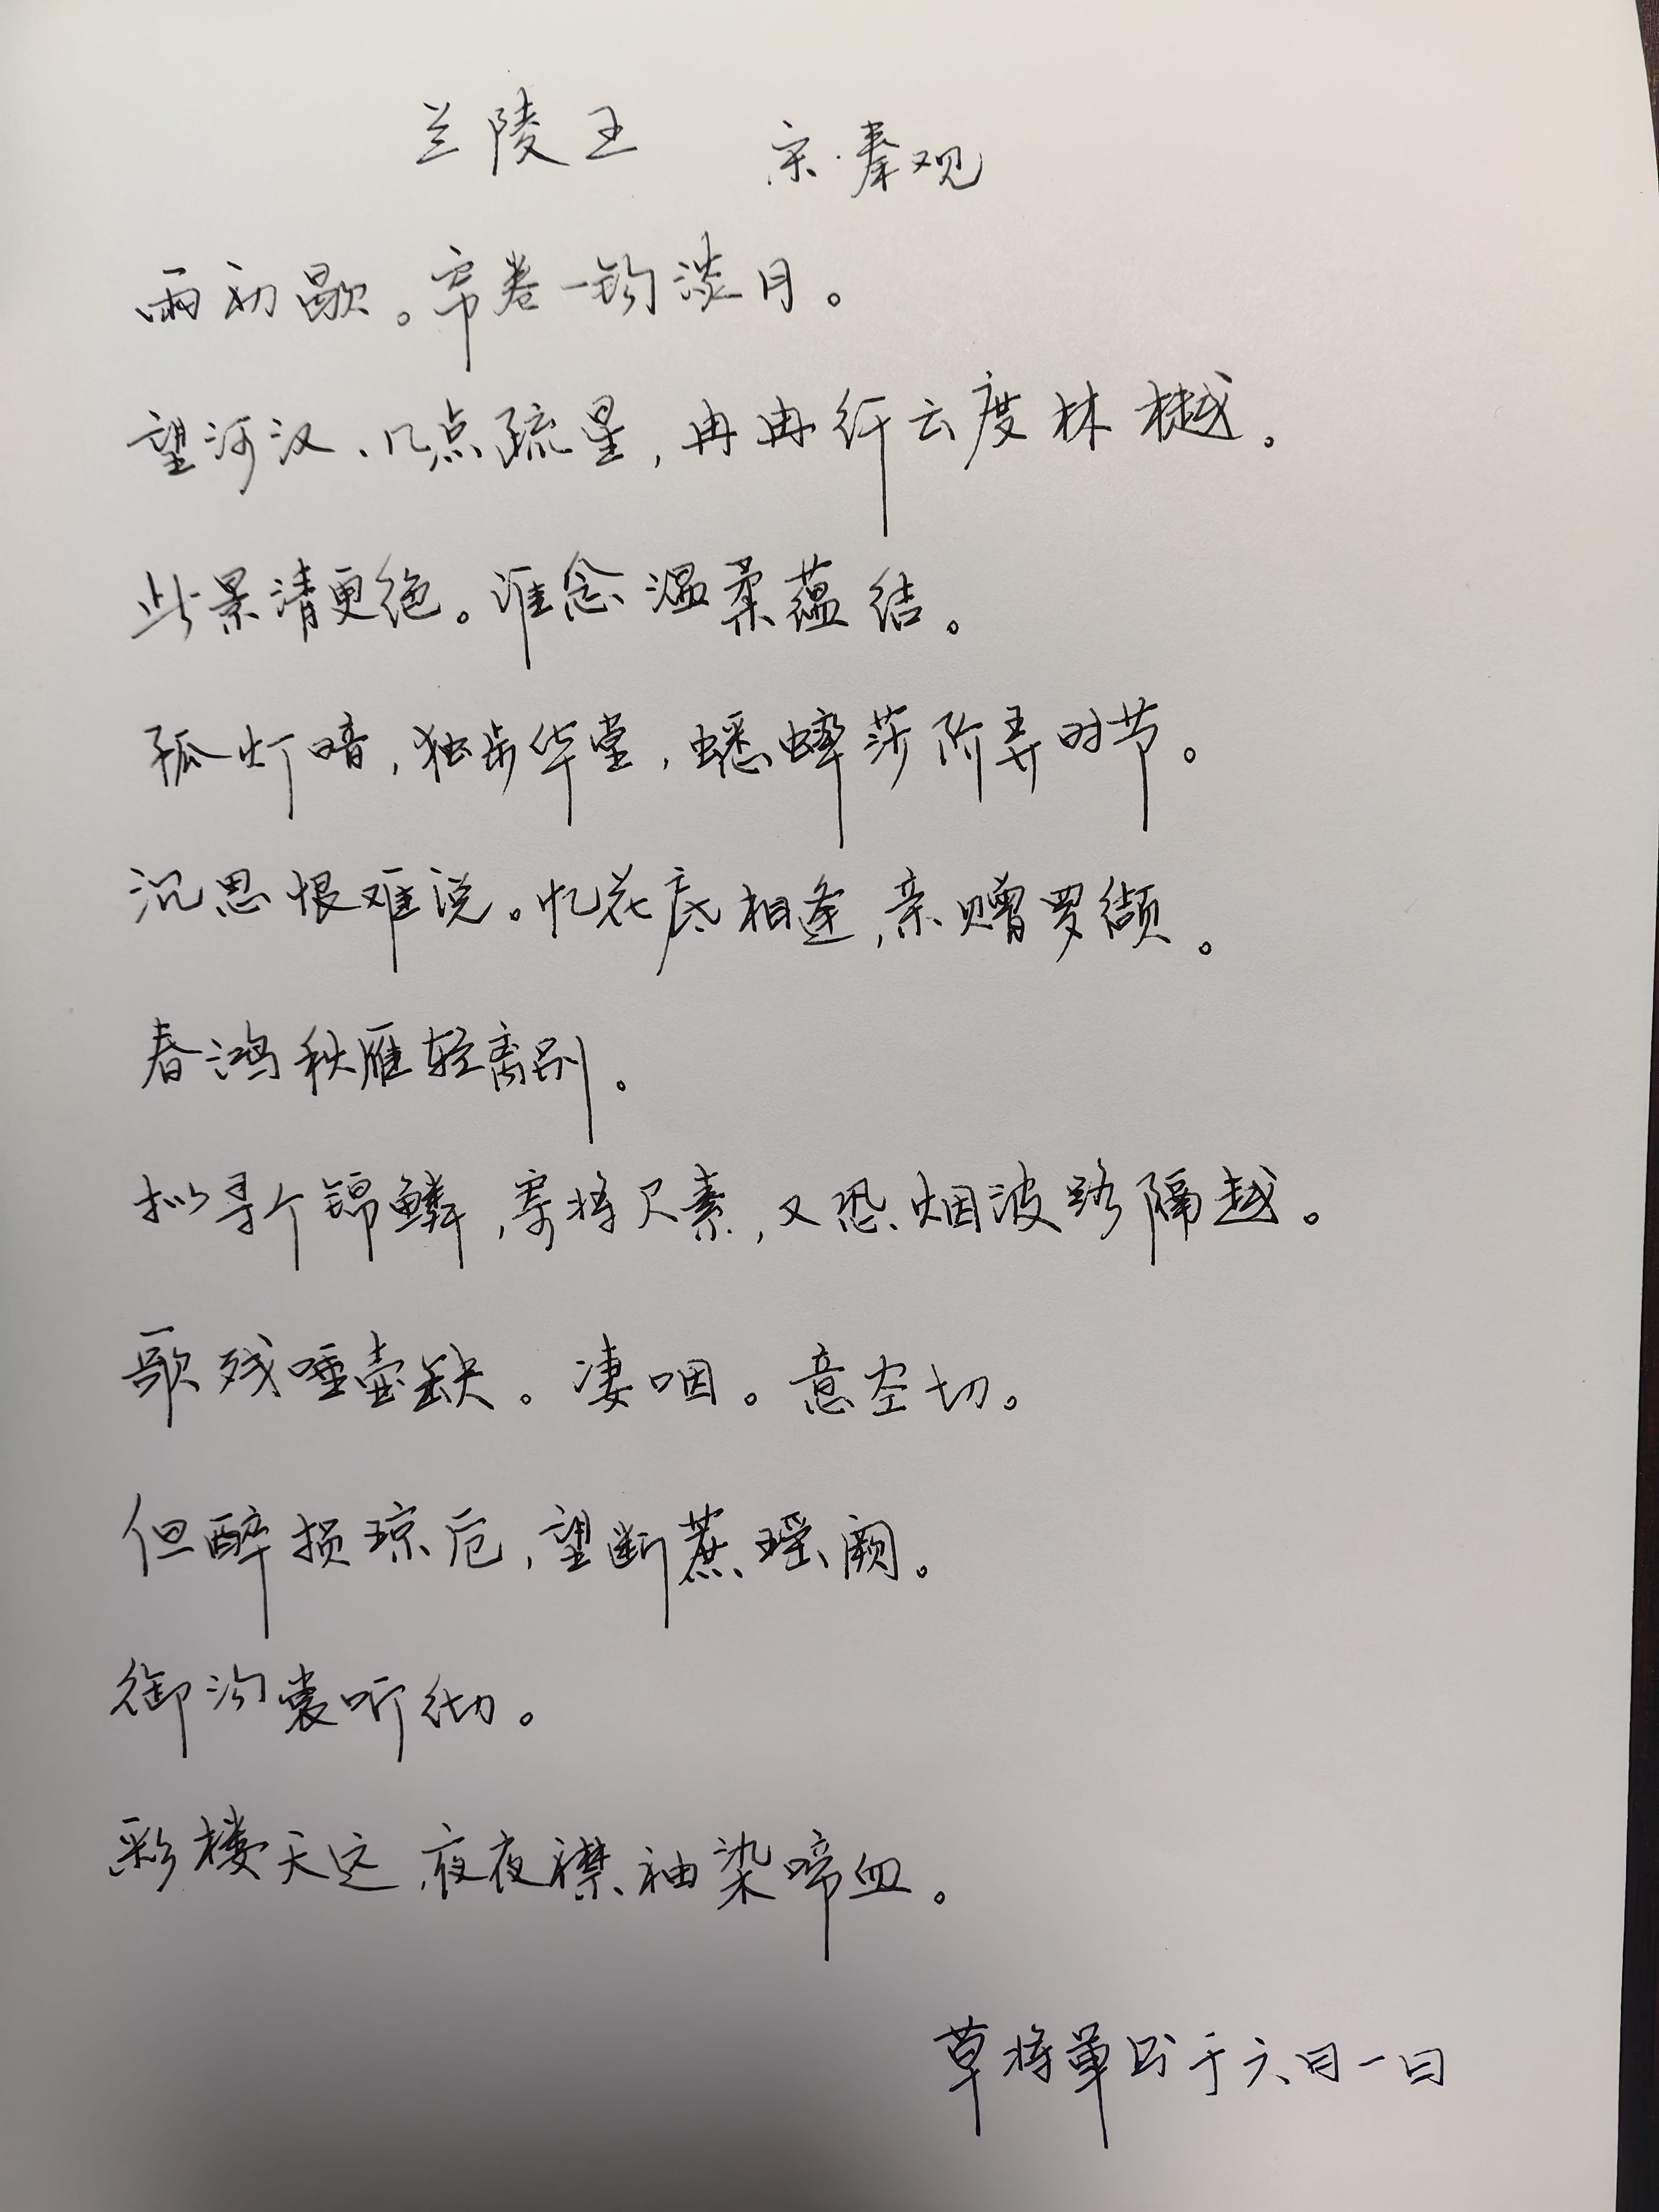 兰陵王 宋·秦观
雨初歇。帘卷一钩淡月。
望河汉、几点疏星,冉冉纤云度林樾。
此景清更绝。谁念温柔蕴结。
孤灯暗,独步华堂,蟋蟀莎阶弄时节。
沉思恨难说。忆花底相逢,亲赠罗缬。
春鸿秋雁轻离别。
拟寻个锦鳞,寄将尺素,又恐烟波路隔越。
歌残唾壶缺。凄咽。意空切。
但醉损琼卮,望断蔗瑶阙。
御沟裳听彻。
彩楼天远,夜夜襟袖染啼血。
草将军 于六月一日